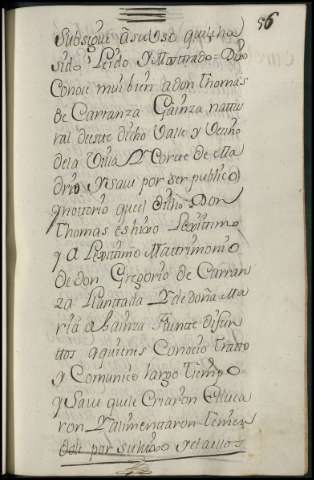 56
Subsigue a su vso que, ha
sido Leido Y Mostrado = Dixo
Conoce mui bien a don Thomas
de Carranza Gainza natu
ral deste dicho Valle y Vecino
dela Villa Y Corte de Ma
drid Y save por ser publico
y nottorio que el dicho Don
Thomas es hixo Lexitimo
y de Lexitimo Mattrimonio
de don Gregorio de Carran
za Llanttada Y de doña Ma
ria de Gainza Funte difun
ttos a quienes Conocio tratto
y Comunico largo Tiempo
y Save que le Criaron Educa
ron Y alimenttaron Tenien
dole por su hixo y de aellos